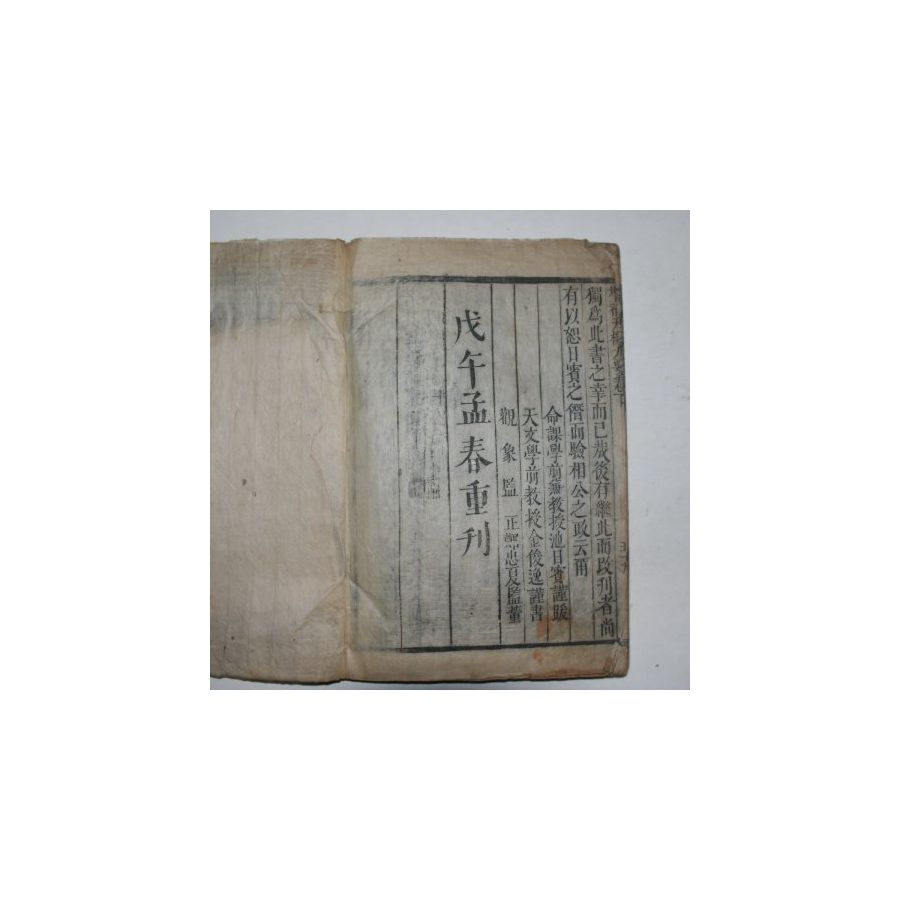 獨為此書之幸而已哉後有繼此而改刊者尚
有以恕日賓之僭而驗相公之政云爾
命課學前兼教授池日賓謹跋
天文學前教授金俊逸謹書
觀象監正
監董
戊午孟春重刊